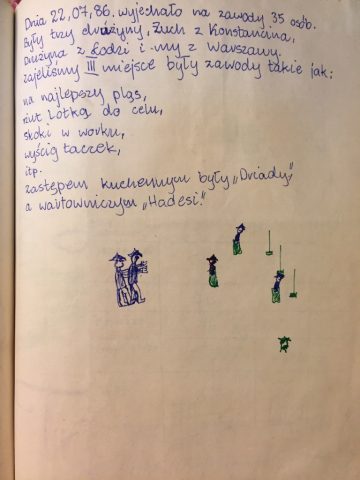 Dnia 22,07,86. wyjechało na zawody 35 osób.
Były trzy drużyny, Zuch z Konstancina,
Drużyna z Łodzi i my z Warszawy.
zajeliśmy III miejsce były zawody takie jak:
na najlepszy pląs,
rzut lotką do celu,
skoki w worku,
wyścig taczek,
itp.
zastępem kuchennym były „Driady,"
a wartowniczym „Hadesi."